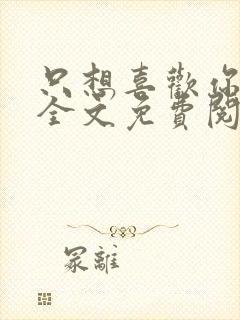 只想喜歡你
全文免費閱
冢離